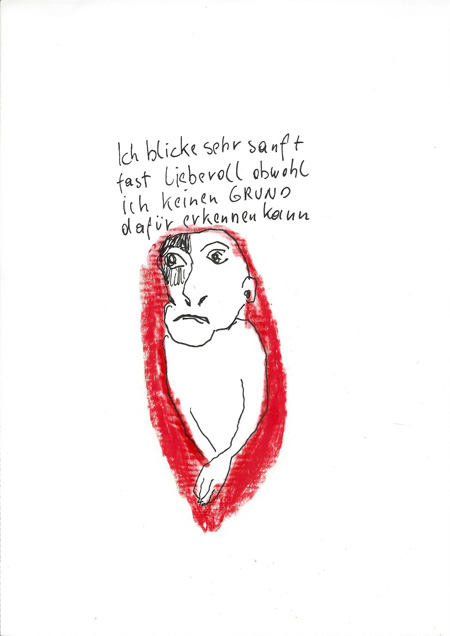 Ich blicke sehr sanft
fast liebevoll obwohl
ich keinen GRUND
dafür erkennen kann